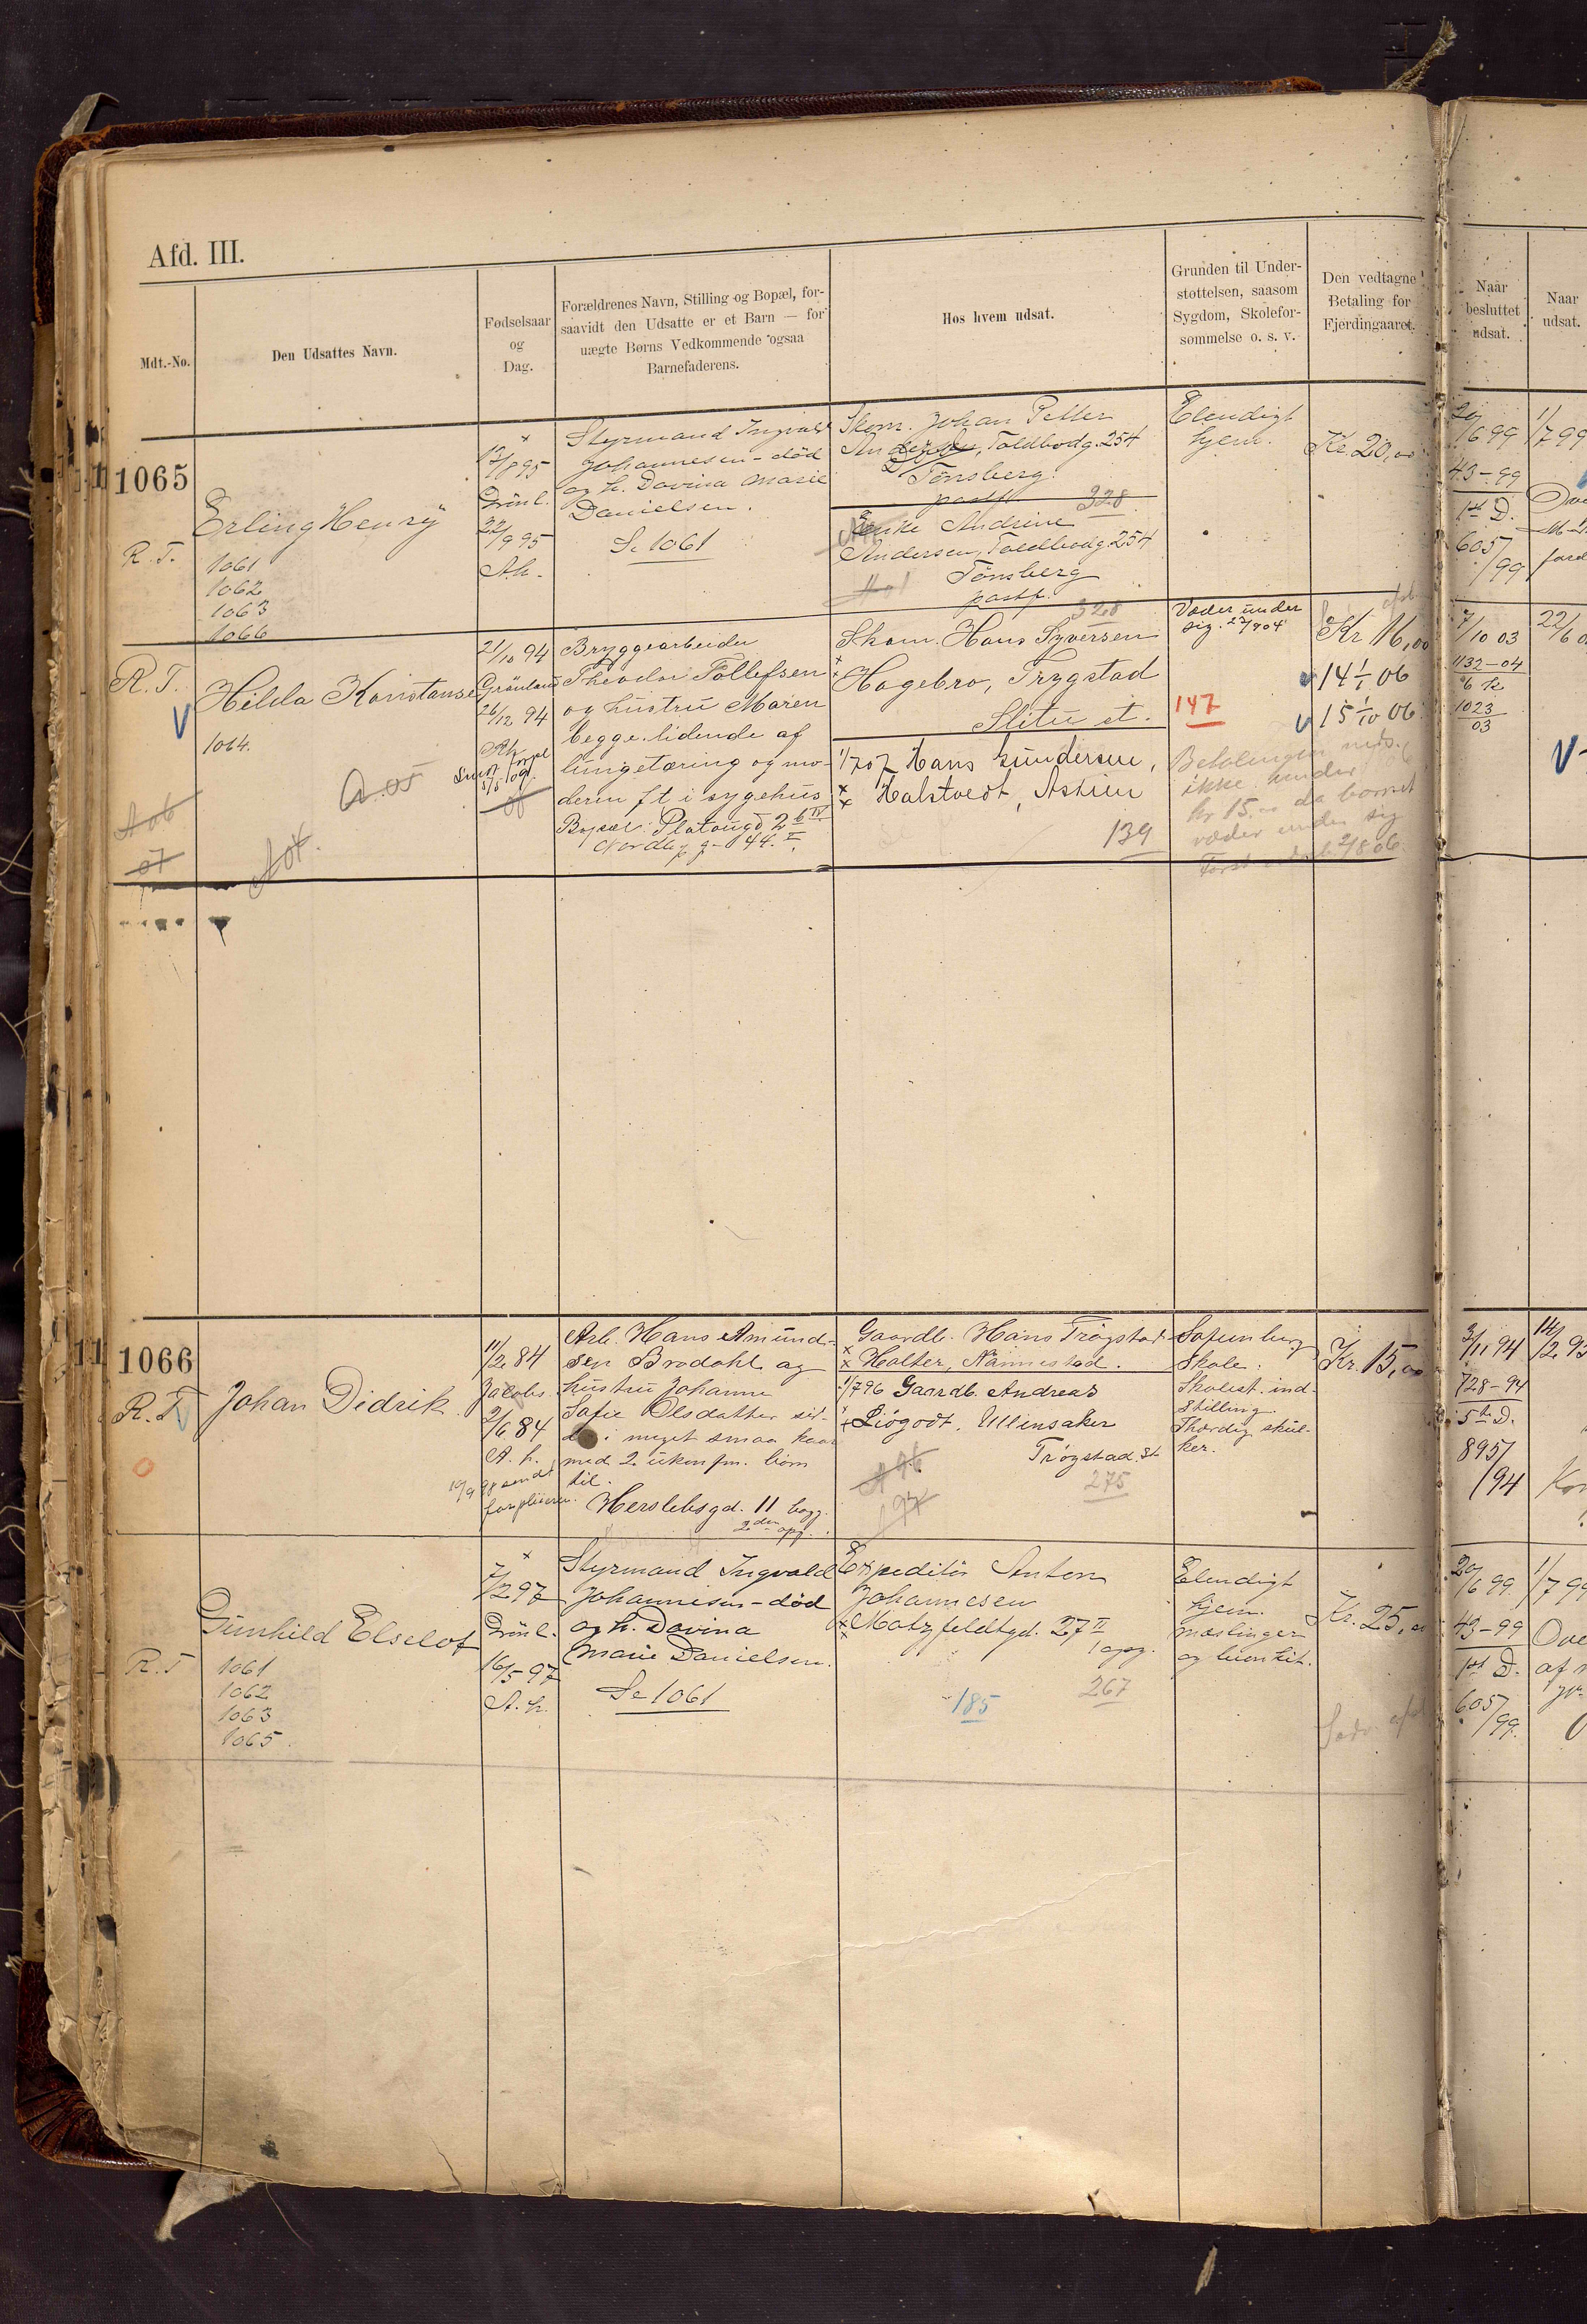 Afd. III.
Mdt.-No.
Den Udsattes Navn.
Fødselsaar
og
Dag.
Forældrenes Navn, Stilling og Bopæl, for-
saavidt den Udsatte er et Barn — for
uægte Børns Vedkommende ogsaa
Barnefaderens.
Hos hvem udsat.
Grunden til Under-
støttelsen, saasom
Sygdom, Skolefor-
sømmelse o. s. v.
Den vedtagne
Betaling for
Fjerdingaaret.
Naar
besluttet
udsat.
Naar
udsat.
1065
R. T.
Erling Henry
1061
1062
1063
1066
17/8 95
Grönl.
22/9 95
A.h.
Styrmand Ingvald
Johannesen - död
og h. Davina Marie
Danielsen.
Se 1061
Skom. Johan Petter
Andersen, Toldbodg. 254
Tönsberg.
postf. 328
Enke Andrine
Andersen, Toldbodg. 254
Tönsberg
postf.
328
Elendigt
hjem.
Kr. 20,00
20/6 99
43-99
1st D.
605/99
1/7 99
R. T.
V
Hilda Konstanse
1064.
A 05
A 06
07
21/10 94
Grönland
26/12 94
Bryggearbeider
Theodor Tollefsen
og hustru Maren
begge lidende af
lungetæring og mo-
deren ft. i sygehus
Bopæl: Platougd 2 b IV
Nordbyg- 44. II.
Skom. Hans Syversen
Hagebro, Trygstad
Slitu st.
1/7 07 Hans Gundersen,
Halstvedt, Askim
139
Væder under
sig. 22/9 04
147
Betalingen neds.
ikke under
kr 15.00 da barnet
væder under sig
2/8 06.
Kr 16,00
14 1/1 06
15 1/10 06
7/10 03
1132-04
6 k
1023
03
V
1066
R. T.
Johan Didrik
11/2 84
Jacobs.
2/6 84
A. h.
19/9 98 sendt
Arb. Hans Amund-
sen Brodahl og
hustru Johanne
Sofie Olsdatter sid-
i meget smaa kaar
med 2 ukonfm. börn
til.
Herslebsgd. 11 bagg.
2den opg.
Gaardb. Hans Trögstad
Holter, Nannestad.
1/7 96 Gaardb. Andreas
Liögodt, Ullensaker
Trögstad. St
275
A 96
97
Sofienberg
Skole.
Skolest. ind-
stilling.
Thordig skul-
ker.
Kr. 15,00
3/11 94
728-94
5te D.
895/94
R. T
Gunhild Elselof
1061
1062
1063
1065
7/2 97
Grönl.
16/5 97
A. h.
Styrmand Ingvald
Johannesen - död
og h. Davina
Marie Danielsen.
Se 1061
Expeditör Anton
Johannesen
Motzfeldtgd. 27 II
1 opg.
267
185
Elendigt
hjem.
mæslinger
og bronkit.
Kr. 25,00
20/6 99
43-99
1st D.
605/99.
1/7 99